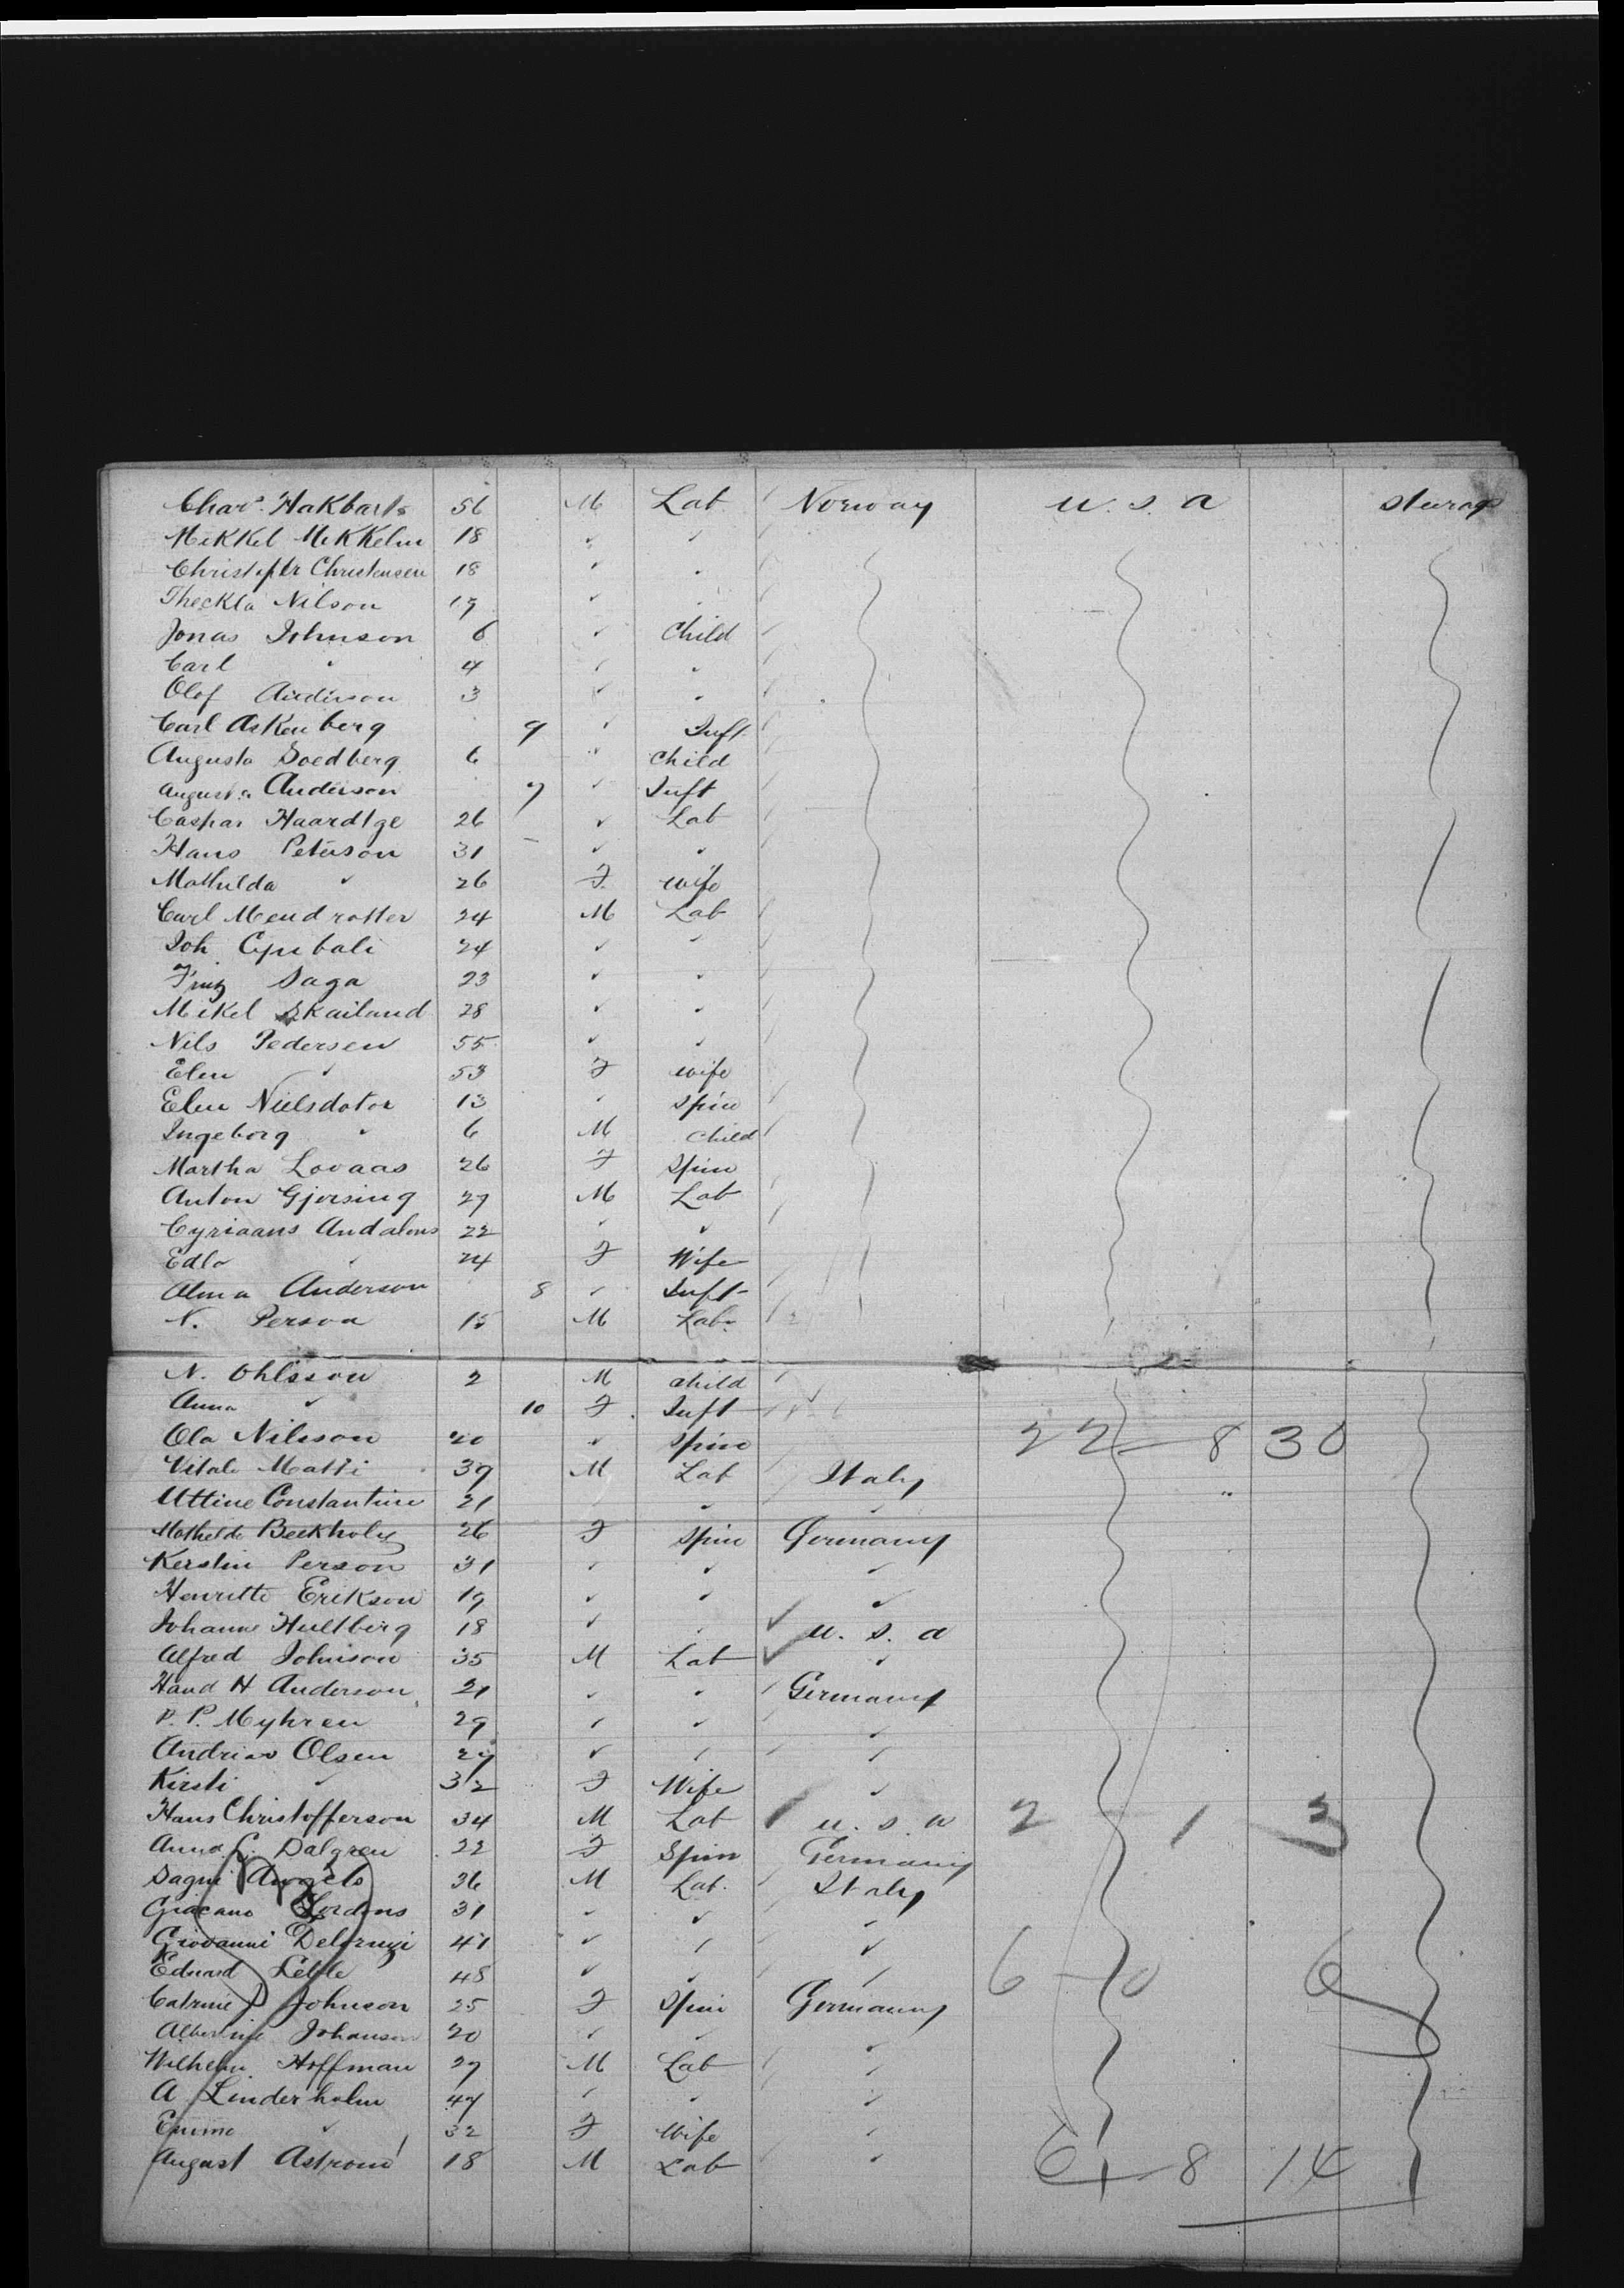 Chas. Hakbarts 56 M Lab Norway U.S.A Steerage
Mikkel Mikkelsen 18 " "
Christopher Christensen 18 " "
Theckla Nilson 19 "
Jonas Johnson 6 " Child
Carl " 4 " "
Olof Anderson 3 " "
Carl Askenberg 9 " Inft
Augusta Soedberg 6 " Child
Augusta Anderson 7 " Inft
Caspar Haardtge 26 " Lab
Hans Peterson 31 " "
Mathilda " 26 F wife
Carl Mendrotter 24 M Lab
Joh 24 " "
Fritz Saga 23 " "
Mikel Skailand 28 " "
Nils Pedersen 55 " "
Elen " 53 F wife
Elen Nielsdotor 13 " Spin
Ingeborg " 6 M Child
Martha Lovaas 26 F Spin
Anton Gjersing 27 M Lab
Cyriaans Andalons 22 " "
Edla " 24 F Wife
Alma Anderson 8 " Inft
N. Person 15 M Lab.
N. Ohlsson 2 M child
Anna " 10 F. Inft
Ola Nilsson 20 " Spin 22 — 8 30
Vitale Matti 39 M Lab Italy
Uttine Constantini 21 " " "
Mathilde Beckholz 26 F Spin Germany
Kerstin Person 31 " " "
Henritte Erikson 19 " " "
Johanne Hultberg 18 " " U.S.A
Alfred Johnson 35 M Lab "
Hand H Anderson 21 " " Germany
P. P. Myhren 29 " " "
Andrias Olsen 29 " " "
Kirsti " 32 F Wife "
Hans Christofferson 34 M Lab U.S.A 2 — 1 3
Anna C. Dalgren 22 F Spin Germany
Sagni Angelo 36 M Lab. Italy
Giacano 31 " " "
Giovanni 41 " " "
Eduard 48 " " " 6 — 0 6
Catrine Johnson 25 F Spin Germany
Albertine Johanson 20 " " "
Wilhelm Hoffman 27 M Lab "
A. Linderholm 47 " " "
Emma " 32 F Wife "
August Astrom 18 M Lab " 6 — 8 14